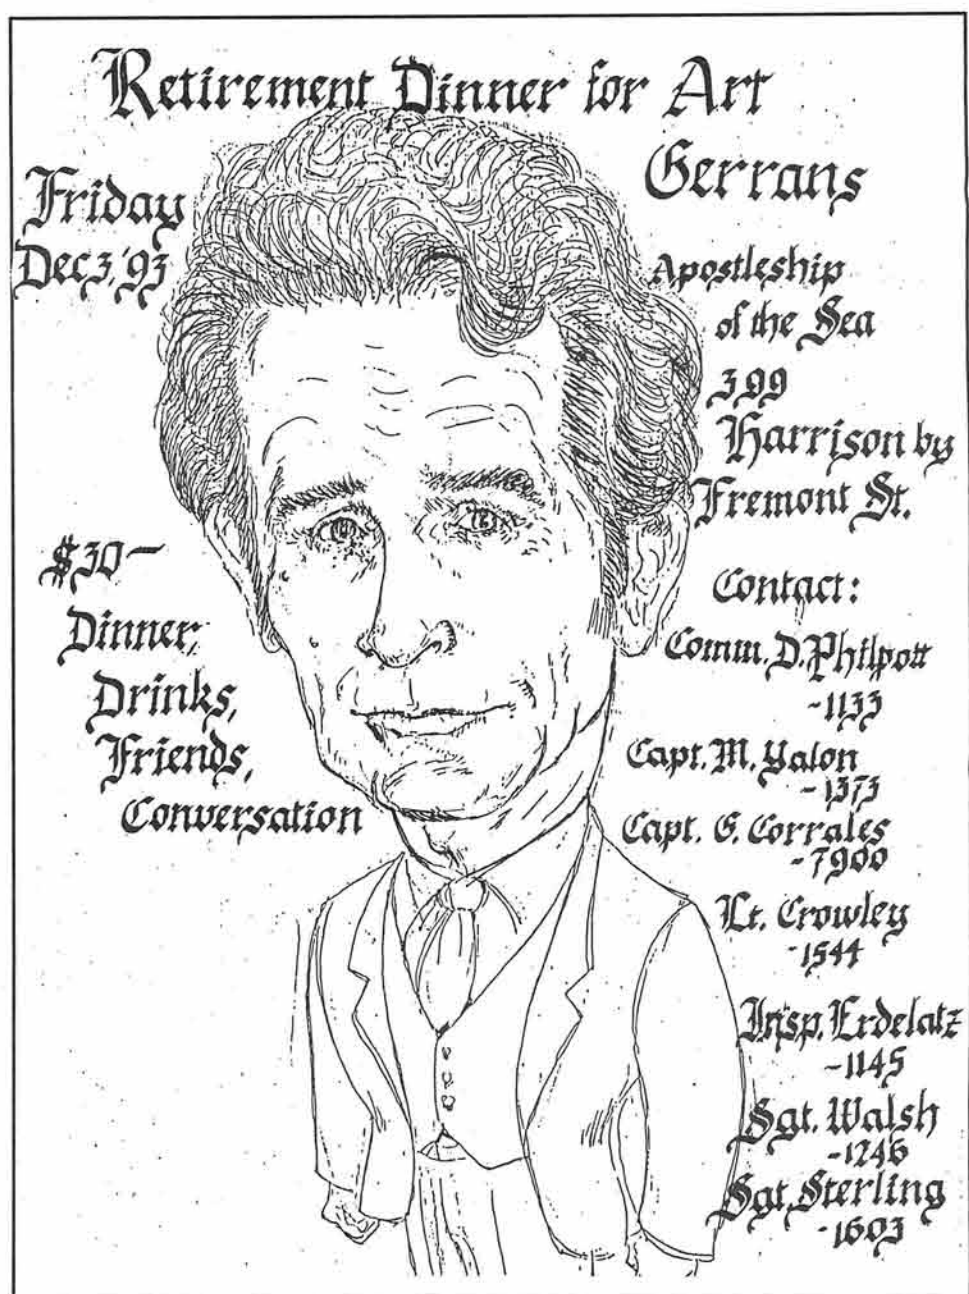 Retirement Dinner for Art
Gerrans
Friday
Dec 3, '93
Apostleship
of the Sea
399
Harrison by
Fremont St.
$30—
Dinner,
Drinks,
Friends,
Conversation
Contact:
Comm. D. Philpott
-1133
Capt. M. Yalon
-1373
Capt. G. Corrales
-7900
Lt. Crowley
-1544
Insp. Erdelatz
-1145
Sgt. Walsh
-1246
Sgt. Sterling
-1603